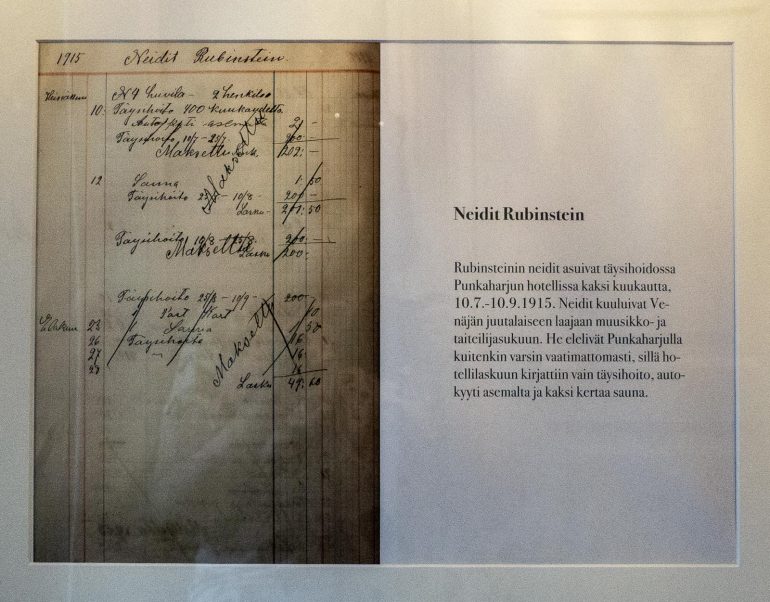 1915 Neidit Rubinstein.
Heinäkuu N4 huvila - 2 henkilöä
10. Täysihoito 400 kuukaudelta
asemalta 2 -
Täysihoito 10/7 - 25/7 200 -
Maksettu Lasku 202: -
12 Sauna 1: 50
Täysihoito 25/7 - 10/8 - 200 -
Lasku 201: 50
Täysihoito 10/8 - 25/8 200: -
Maksettu Lasku 200: -
Täysihoito 25/8 - 10/9 - 200 -
Elokuu 23 Sauna 1 50
26 Täysihoito 16
27 " 16:
28 16
Lasku 49: 60
Maksettu
Maksettu
Neidit Rubinstein
Rubinsteinin neidit asuivat täysihoidossa
Punkaharjun hotellissa kaksi kuukautta,
10.7.-10.9.1915. Neidit kuuluivat Ve-
näjän juutalaiseen laajaan muusikko- ja
taiteilijasukuun. He elelivät Punkaharjulla
kuitenkin varsin vaatimattomasti, sillä ho-
tellilaskuun kirjattiin vain täysihoito, auto-
kyyti asemalta ja kaksi kertaa sauna.